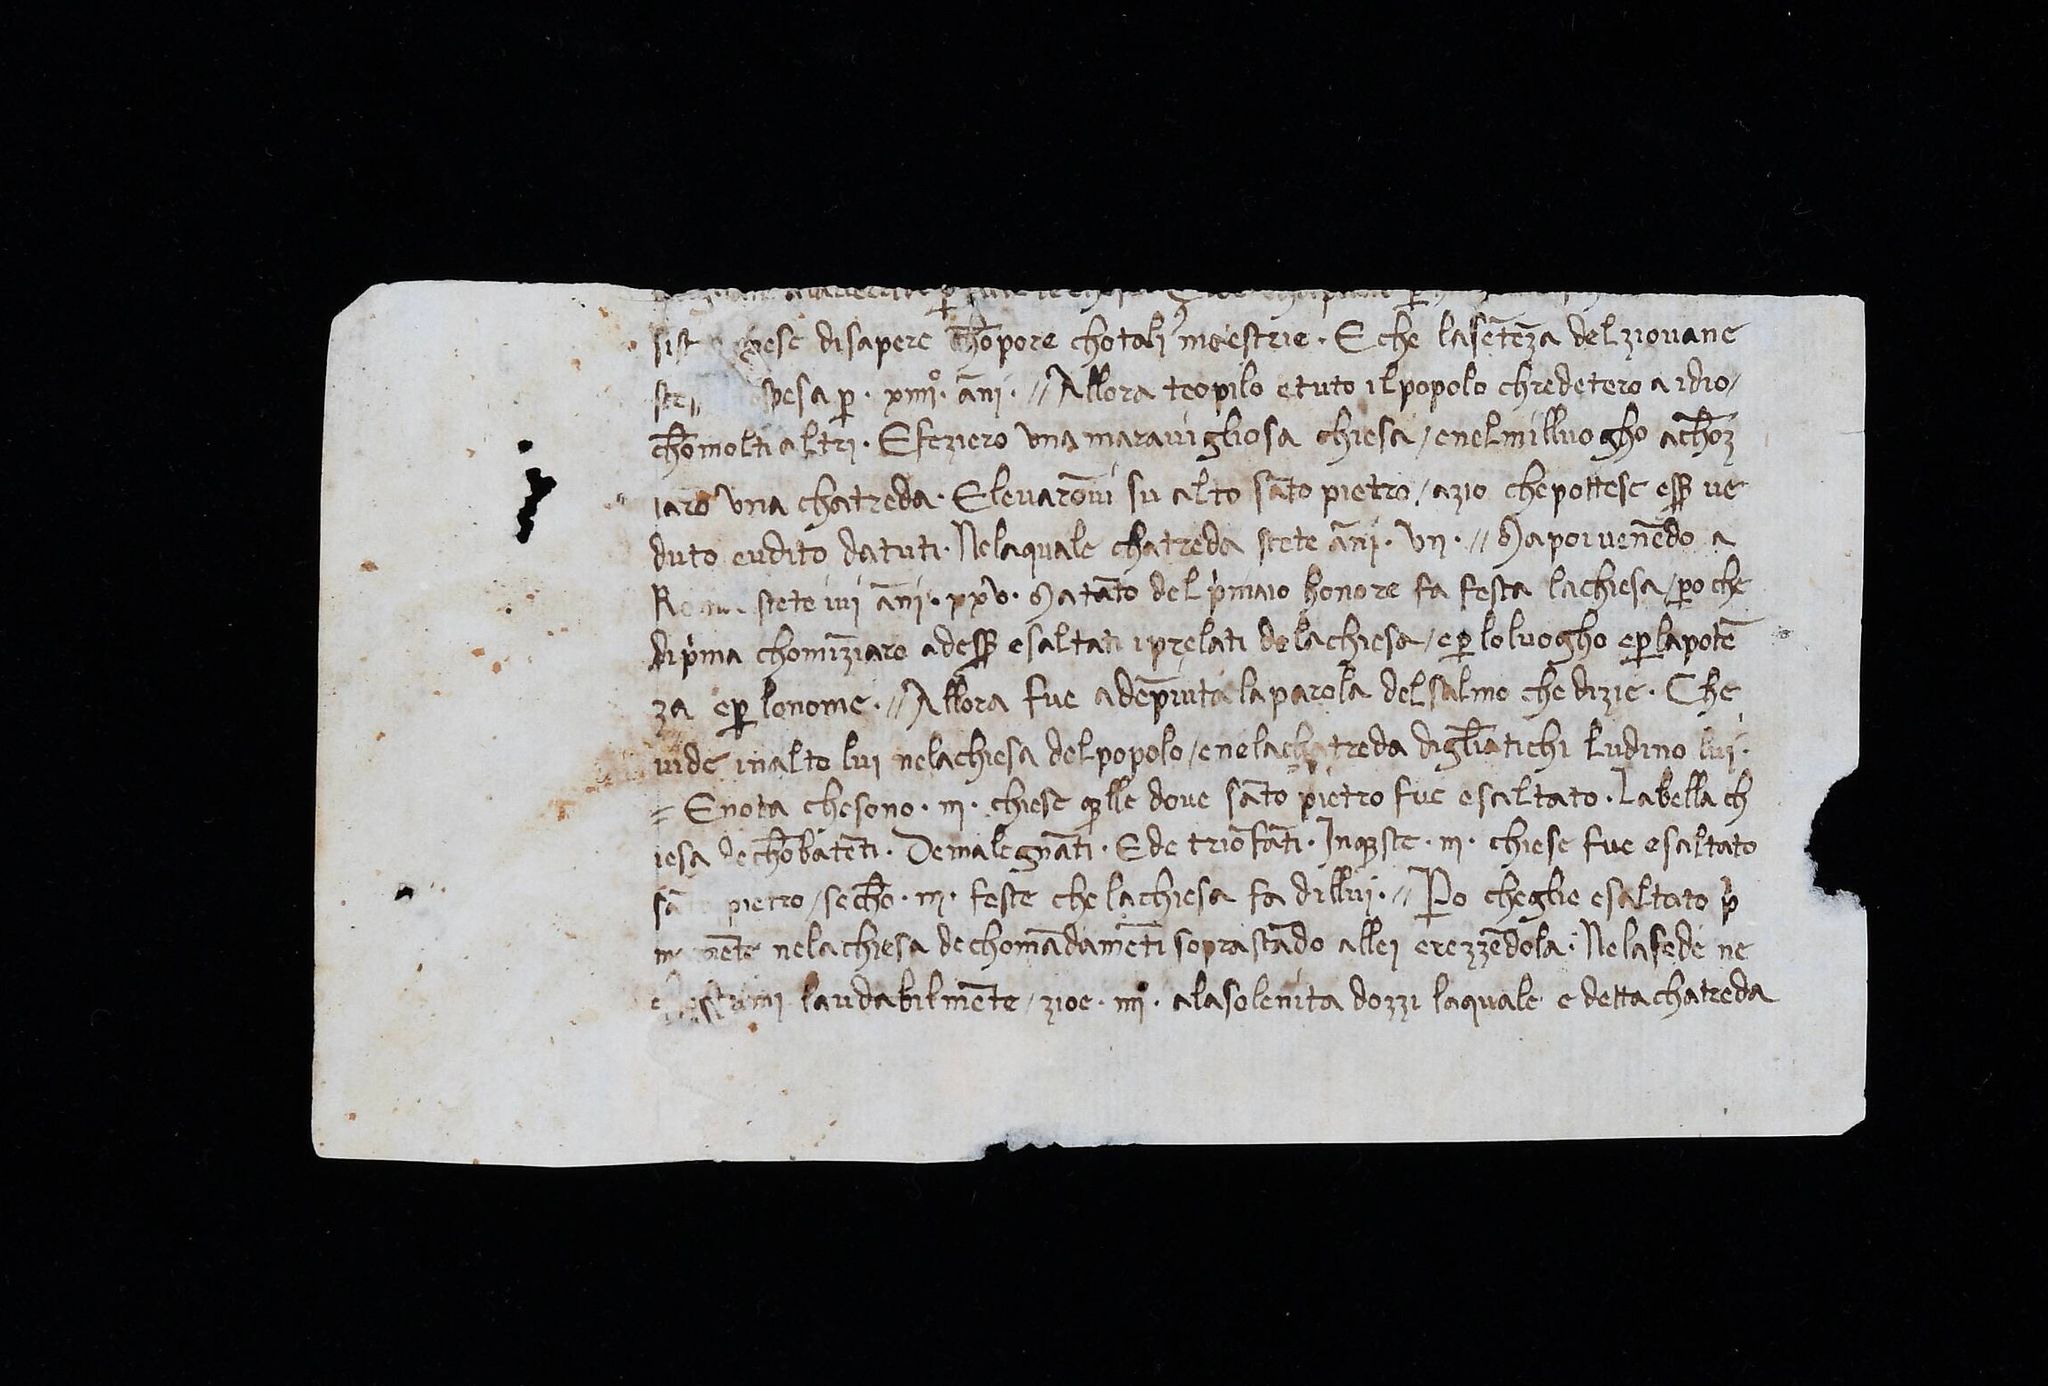 disapere cho̅pore chotali maestrie · E che lase̅te̅za del ziovane
sopesa p̱ · xiiiiº · a̅ni · // Allora teopilo e tuto il popolo chredetero a idio /
cho̅ molti altri · E feziero una maravigliosa chiesa / enelmilluogho acho̅z
iaro una chatreda · E levaro̅vi su alto sa̅to pietro / azio che pottese ess̱ ve
duto eudito da tuti · Nelaquale chatreda stete a̅ni · vii · // Ma poi vene̅do a
Roma stete ivi a̅ni · xxv · Ma ta̅to del p̍maio honore fa festa lachiesa / p̱o che
dip̍ma chomi̅ziaro adess̱ esaltati i prelati delachiesa / e p̱ lo luogho e p̱ lapote̅
za e p̱ lonome · // Allora fue ade̅piuta laparola del salmo che dizie · Che
vide inalto lui nelachiesa del popolo / enelachatreda digli̅atichi ludino lui ·
= E nota chesono · iii · chiese q̱lle dove sa̅to pietro fue esaltato · Labella ch
iesa de cho̅bate̅ti · De malegna̅ti · E de trio̅fa̅ti · In q̱ste · iii · chiese fue esaltato
sa̅to pietro / secho̅ · iii · feste che lachiesa fa dillui · // P̱o cheglie esaltato p̍
mame̅te nelachiesa de choma̅dame̅ti soprasta̅do allei erezze̅dola · Nelasede ne
laudabilme̅te / zioe · iiiiº · ala solenita dozzi laquale e detta chatreda